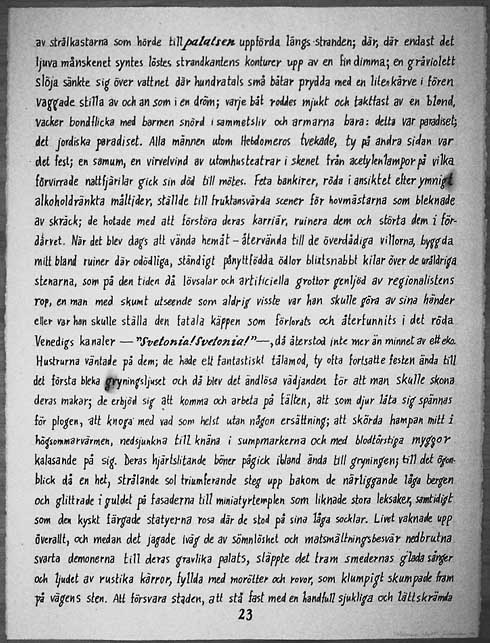 av strålkastarna som hörde till palatsen uppförda längs stranden; där, där endast det
ljuva månskenet syntes löstes strandkantens konturer upp av en fin dimma; en gråviolett
slöja sänkte sig över vattnet där hundratals små båtar prydda med en liten kärve i fören
vaggade stilla av och an som i en dröm; varje båt roddes mjukt och taktfast av en blond,
vacker bondflicka med barmen snörd i sammetsliv och armarna bara: detta var paradiset;
det jordiska paradiset. Alla männen utom Hebdomeros tvekade, ty på andra sidan var
det fest; en samum, en virvelvind av utomhusteatrar i skenet från acetylenlampor på vilka
förvirrade nattfjärilar gick sin död till mötes. Feta bankirer, röda i ansiktet efter ymnigt
alkoholdränkta måltider, ställde till fruktansvärda scener för hovmästarna som bleknade
av skräck; de hotade med att förstöra deras karriär, ruinera dem och störta dem i för-
därvet. När det blev dags att vända hemåt – återvända till de överdådiga villorna, byggda
mitt bland ruiner där odödliga, ständigt pånyttfödda ödlor blixtsnabbt kilar över de uråldriga
stenarna, som på den tiden då lövsalar och artificiella grottor genljöd av regionalistens
rop, en man med skumt utseende som aldrig visste var han skulle göra av sina händer
eller var han skulle ställa den fatala käppen som förlorats och återfunnits i det röda
Venedigs kanaler — "Svetonia! Svetonia!" —, då återstod inte mer än minnet av ett eko.
Hustrurna väntade på dem; de hade ett fantastiskt tålamod, ty ofta fortsatte festen ända till
det första bleka gryningsljuset och då blev det ändlösa vädjanden för att man skulle skona
deras makar; de erbjöd sig att komma och arbeta på fälten, att som djur låta sig spännas
för plogen, att knoga med vad som helst utan någon ersättning; att skörda hampan mitt i
högsommarvärmen, nedsjunkna till knäna i sumpmarkerna och med blodtörstiga myggor
kalasande på sig. Deras hjärtslitande böner pågick ibland ända till gryningen; till det ögon-
blick då en het, strålande sol triumferande steg upp bakom de närliggande låga bergen
och glittrade i guldet på fasaderna till miniatyrtemplen som liknade stora leksaker, samtidigt
som den kyskt färgade statyerna rosa där de stod på sina låga socklar. Livet vaknade upp
överallt, och medan det jagade iväg de av sömnlöshet och matsmältningsbesvär nedbrutna
svarta demonerna till deras gravlika palats, släppte det fram smedernas glada sånger
och ljudet av rustika kärror, fyllda med morötter och rovor, som klumpigt skumpade fram
på vägens sten. Att försvara staden, att stå fast med en handfull sjukliga och lättskrämda
23